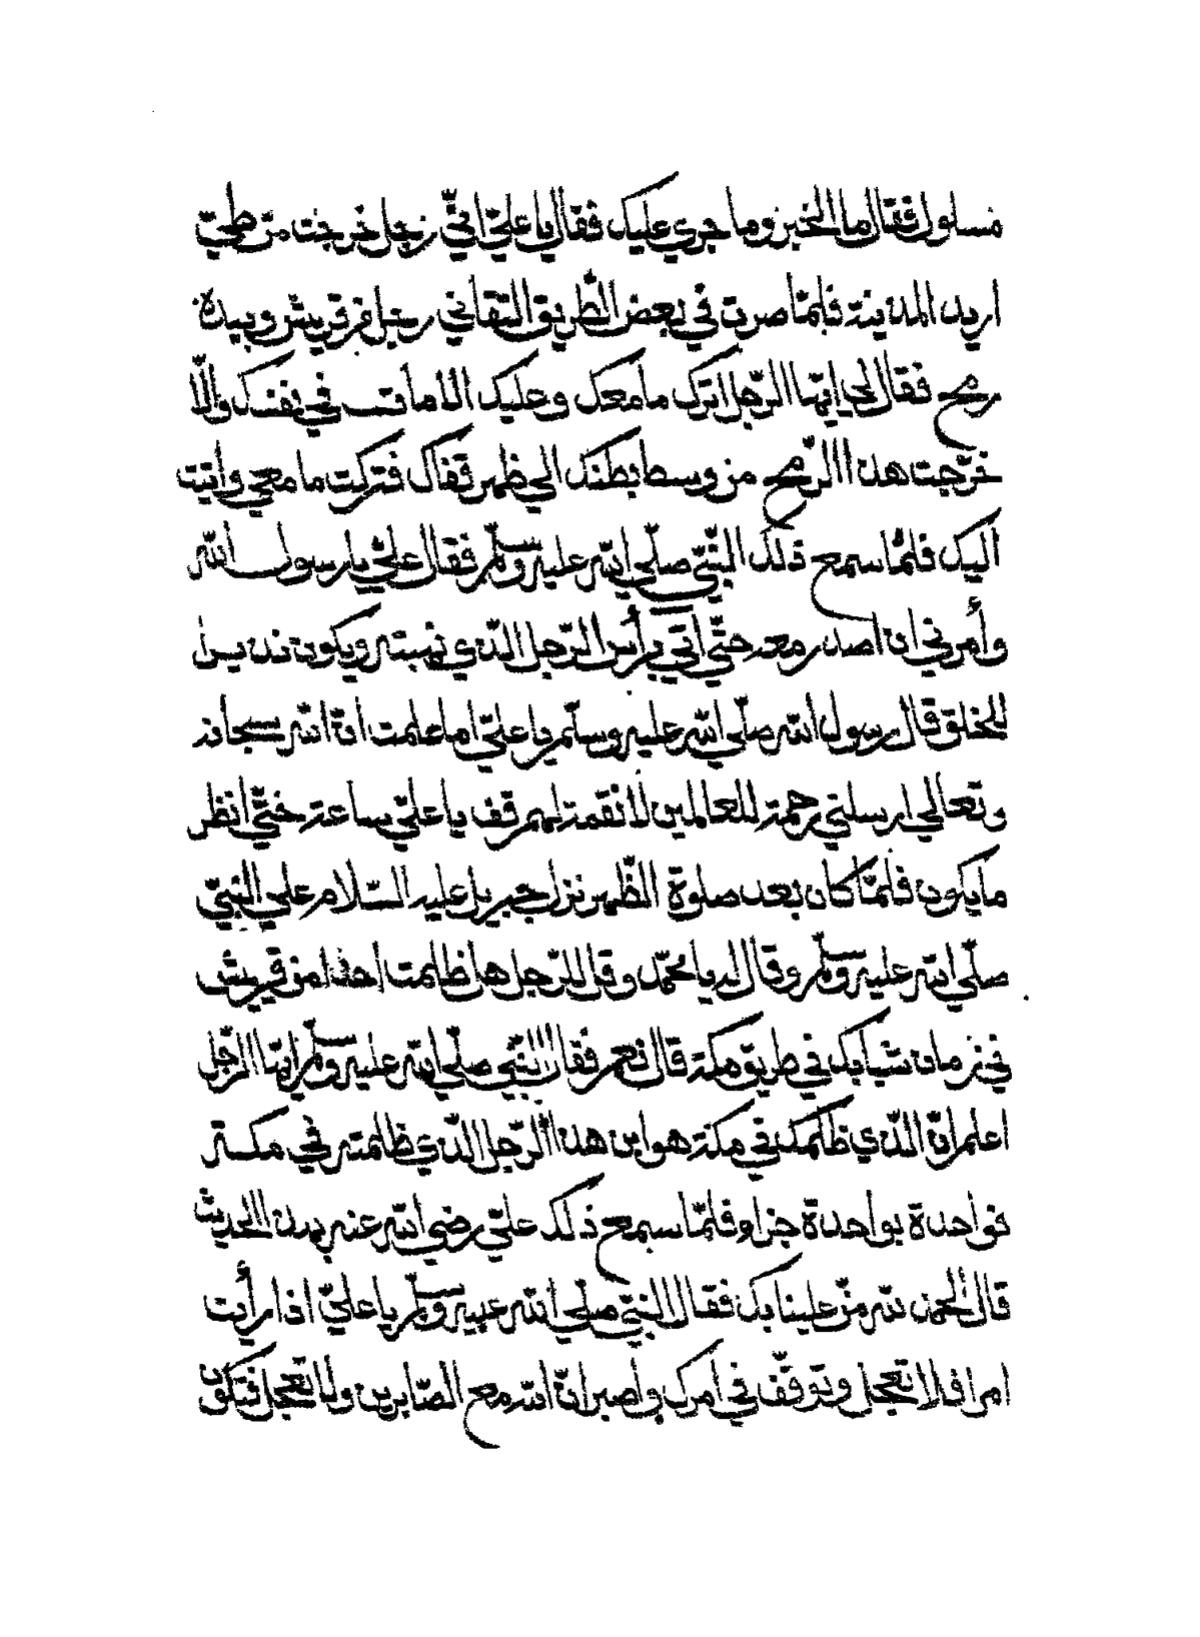 مسلول فقال ما الخبر وما جري عليك فقال يا عليّ انّي رجل خرجت من
اريد المدينة فلمّا صرت في بعض الطّريق التقاني رجل من قريش وبيده
رمح فقال لي ايّها الرّجل اترك ما معك وعليك الامان في نفسك والّا
خرّجت هذا الرّمح من وسط بطنك الي ظهر قفاك فتركت ما معي واتيت
اليك فلمّا سمع ذلك النّبيّ صلّي الله عليه وسلّم فقال عليّ يا رسول الله
وأمرني ان اصدر معه حتّي اتي برأس الرّجل الّذي نهبته ويكون نذيرا
للخلق قال رسول الله صلّي الله عليه وسلّم يا عليّ اما علمت انّ الله سبحانه
وتعالي ارسلني رحمة للعالمين لا نقمة لهم قف يا عليّ ساعة حتّي انظر
ما يكون فلمّا كان بعد صلوة الظّهر نزل جبريل عليه السّلام علي النّبيّ
صلّي الله عليه وسلّم وقال له يا محمّد وقل للرّجل هل ظلمت احدا من قريش
في زمان شبابك في طريق مكة قال نعم فقال النّبي صلّي الله عليه وسلّم ايّها الرّجل
اعلم انّ الّذي ظلمك في مكة هو ابن هذا الرّجل الّذي ظلمته في مكة
فواحدة بواحدة جزاء فلمّا سمع ذلك عليّ رضي الله عنه بهذا الحديث
قال الحمد لله منّ علينا بك فقال النّبيّ صلّي الله عليه وسلّم يا عليّ اذا رأيت
امرا فلا تعجل وتوقّف في امرك واصبر انّ الله مع الصّابرين ولا تعجل فتكون